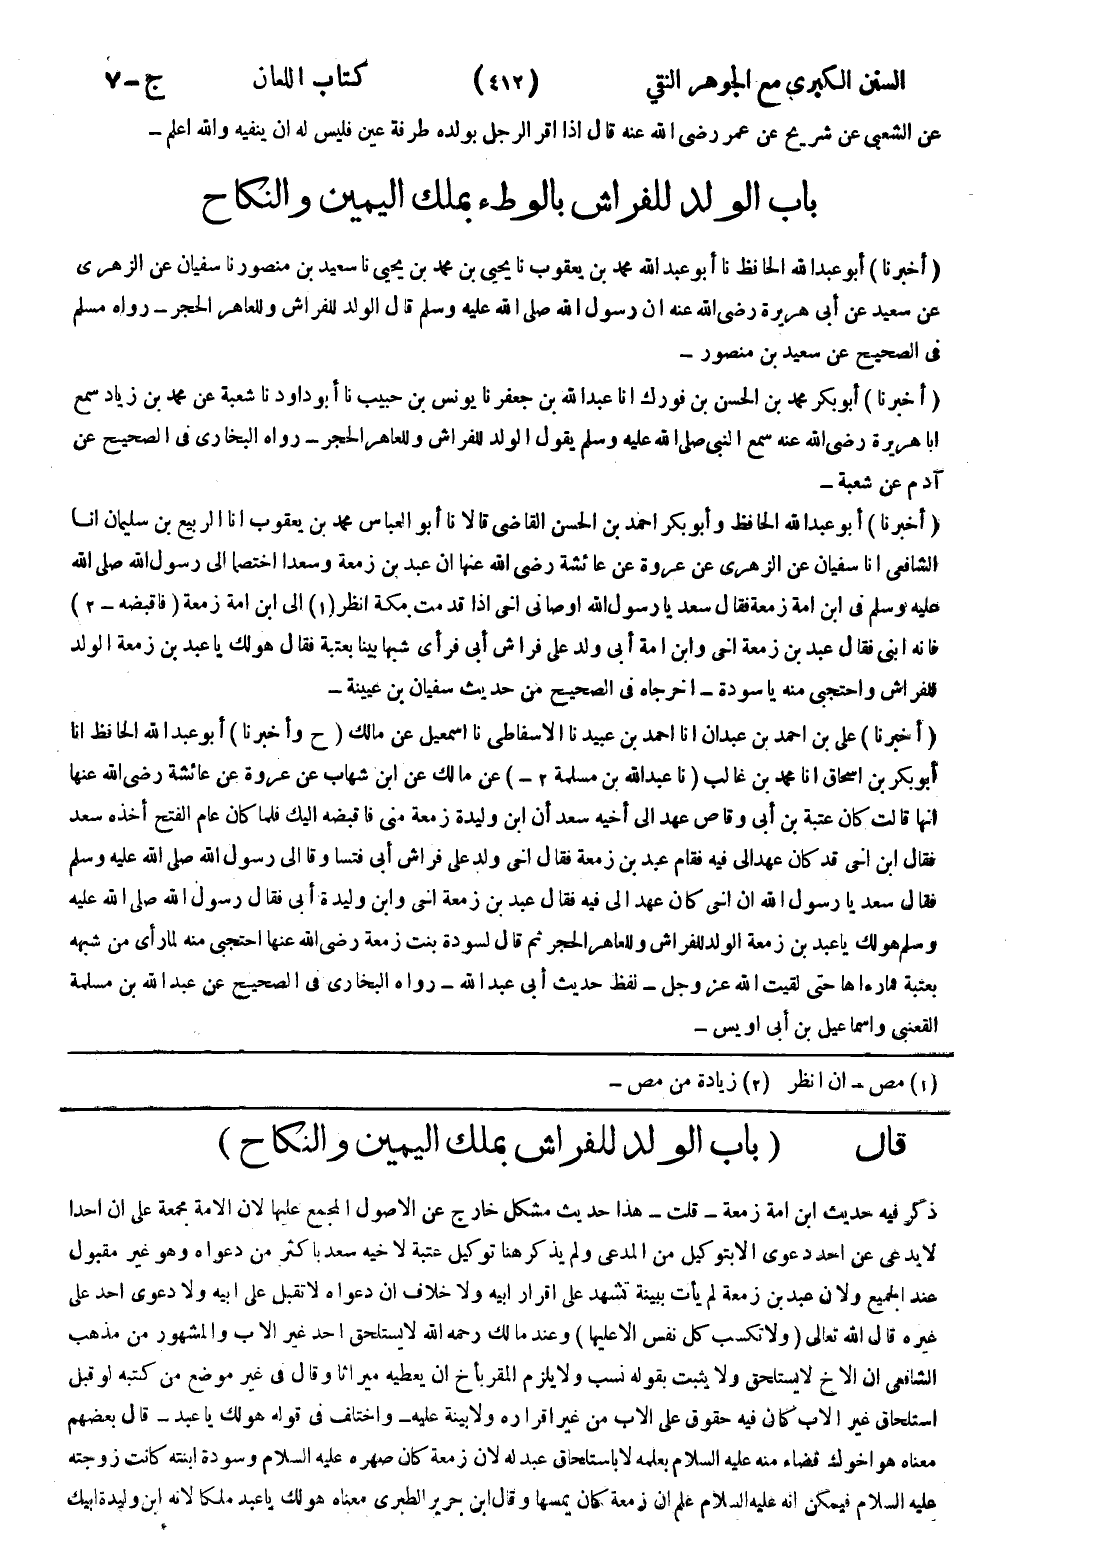 السنن الكبرى مع الجوهر النقي (٤١٢) كتاب اللعان ج-٧
عن الشعبى عن شريح عن عمر رضى الله عنه قال اذا اقر الرجل بولده طرفة عين فليس له ان ينفيه والله اعلم -
باب الولد للفراش بالوطء بملك اليمين والنكاح
(أخبرنا) أبو عبدالله الحافظ نا أبو عبدالله محمد بن يعقوب نا يحيى بن محمد بن يحيى نا سعيد بن منصور نا سفيان عن الزهرى
عن سعيد عن أبى هريرة رضى الله عنه ان رسول الله صلى الله عليه وسلم قال الولد للفراش وللعاهر الحجر - رواه مسلم
فى الصحيح عن سعيد بن منصور -
(أخبرنا) أبو بكر محمد بن الحسن بن فورك انا عبدالله بن جعفر نا يونس بن حبيب نا أبو داود نا شعبة عن محمد بن زياد سمع
ابا هريرة رضى الله عنه سمع النبى صلى الله عليه وسلم يقول الولد للفراش وللعاهر الحجر - رواه البخارى فى الصحيح عن
آدم عن شعبة -
(أخبرنا) أبو عبدالله الحافظ وأبو بكر احمد بن الحسن القاضى قالا نا أبو العباس محمد بن يعقوب انا الربيع بن سليمان انا
الشافعى انا سفيان عن الزهرى عن عروة عن عائشة رضى الله عنها ان عبد بن زمعة وسعدا اختصما الى رسول الله صلى الله
عليه وسلم فى ابن امة زمعة فقال سعد يا رسول الله اوصانى اخى اذا قدمت مكة انظر (١) الى ابن امة زمعة (فاقبضه - ٢)
فانه ابنى فقال عبد بن زمعة اخى وابن امة أبى ولد على فراش أبى فرأى شبها بينا بعتبة فقال هو لك يا عبد بن زمعة الولد
للفراش واحتجبى منه يا سودة - اخرجاه فى الصحيح من حديث سفيان بن عيينة -
(أخبرنا) على بن احمد بن عبدان انا احمد بن عبيد نا الاسفاطى نا اسمعيل عن مالك (ح وأخبرنا) أبو عبدالله الحافظ انا
أبو بكر بن اسحاق انا محمد بن غالب (نا عبدالله بن مسلمة ٢ -) عن مالك عن ابن شهاب عن عروة عن عائشة رضى الله عنها
انها قالت كان عتبة بن أبى وقاص عهد الى أخيه سعد أن ابن وليدة زمعة منى فاقبضه اليك فلما كان عام الفتح أخذه سعد
فقال ابن اخى قد كان عهد الى فيه فقام عبد بن زمعة فقال اخى ولد على فراش أبى فتساوقا الى رسول الله صلى الله عليه وسلم
فقال سعد يا رسول الله ان اخى كان عهد الى فيه فقال عبد بن زمعة اخى وابن وليدة أبى فقال رسول الله صلى الله عليه
وسلم هو لك يا عبد بن زمعة الولد للفراش وللعاهر الحجر ثم قال لسودة بنت زمعة رضى الله عنها احتجبى منه لما رأى من شبهه
بعتبة فما رءاها حتى لقيت الله عز وجل - لفظ حديث أبى عبدالله - رواه البخارى فى الصحيح عن عبدالله بن مسلمة
القعنبى واسماعيل بن أبى اويس -
(١) مص - ان انظر (٢) زيادة من مص -
قال (باب الولد للفراش بملك اليمين والنكاح)
ذكر فيه حديث ابن امة زمعة - قلت - هذا حديث مشكل خارج عن الاصول المجمع عليها لان الامة مجمعة على ان احدا
لا يدعى عن احد دعوى الا بتوكيل من المدعى ولم يذكر هنا توكيل عتبة لاخيه سعد باكثر من دعواه وهو غير مقبول
عند الجميع ولان عبد بن زمعة لم يأت ببينة تشهد على اقرار ابيه ولا خلاف ان دعواه لا تقبل على ابيه ولا دعوى احد على
غيره قال الله تعالى (ولا تكسب كل نفس الا عليها) وعند مالك رحمه الله لا يستلحق احد غير الاب والمشهور من مذهب
الشافعى ان الاخ لا يستلحق ولا يثبت بقوله نسب ولا يلزم المقر بأخ ان يعطيه ميراثا وقال فى غير موضع من كتبه لو قبل
استلحاق غير الاب كان فيه حقوق على الاب من غير اقراره ولا بينة عليه - واختلف فى قوله هو لك يا عبد - قال بعضهم
معناه هو اخوك قضاء منه عليه السلام بعلمه لا باستلحاق عبد له لان زمعة كان صهره عليه السلام وسودة ابنته كانت زوجته
عليه السلام فيمكن انه عليه السلام علم ان زمعة كان يمسها وقال ابن جرير الطبرى معناه هو لك يا عبد ملكا لانه ابن وليدة ابيك